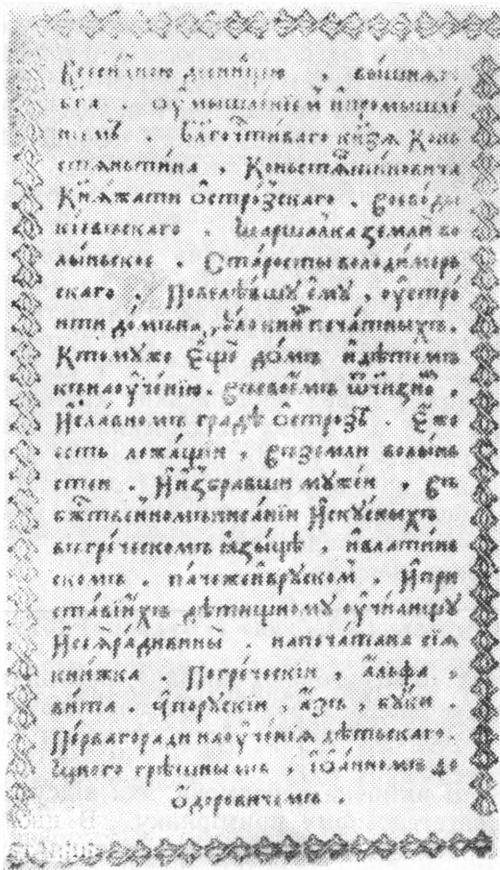 всеси́лною десни́цею . вы́шнѧго
бг҃а . оу҆мышле́нїемъ и҆промышле́
нїемъ . Бл҃гочт҃иваго кн҃зѧ Конь
стѧньти́на , Коньстѧньти́новича
Кнѧ́жати Ѻ҆стро́зскаго . воево́ды
кїевьскаго . Маршалка землѝ во
лыньское . Ста́росты володимерь
скаго . Повелѣ́вшꙋ є҆мꙋ̀ , оу҆стро́
ити до́мъна дѣло книгъ печа́тныхъ.
Ктомꙋ́же Е҆щѐ до́мъ и҆дѣ́темъ
кънаоуче́нїю. въсвое́мъ ѿчизно ,
И҆сла́вномъ гра́дѣ Ѻ҆стро́зѣ . Е҆́же
єсть лежа́щїи , въземли волы́нь
стеи . И҆и҆збравши мꙋ́жеи , въ
бж҃твенномъписа́нїи И҆скꙋ́сныхъ
въгре́ческомъ ꙗ҆зы́цѣ , и҆влаты́нь
скомъ . па́чежеи҆врꙋ́скомъ , И҆при
ста́вїи҆хъ дѣ́тищномꙋ оу҆чи́лищꙋ
И҆сеѧ̀ра́дивины̀ . напеча́тана сїѧ̀
кни́жка . Погре́ческїи , а҆́льфа ,
ви́та . А҆порꙋ́скїи , а҆́зъ , бꙋ́ки .
Пе́рвагоради наоуче́нїѧ дѣ́тьскаго.
Мно́ю грѣ́шнымъ , І҆ѡа́нномъ фе
ѻ҆́доровичемъ .